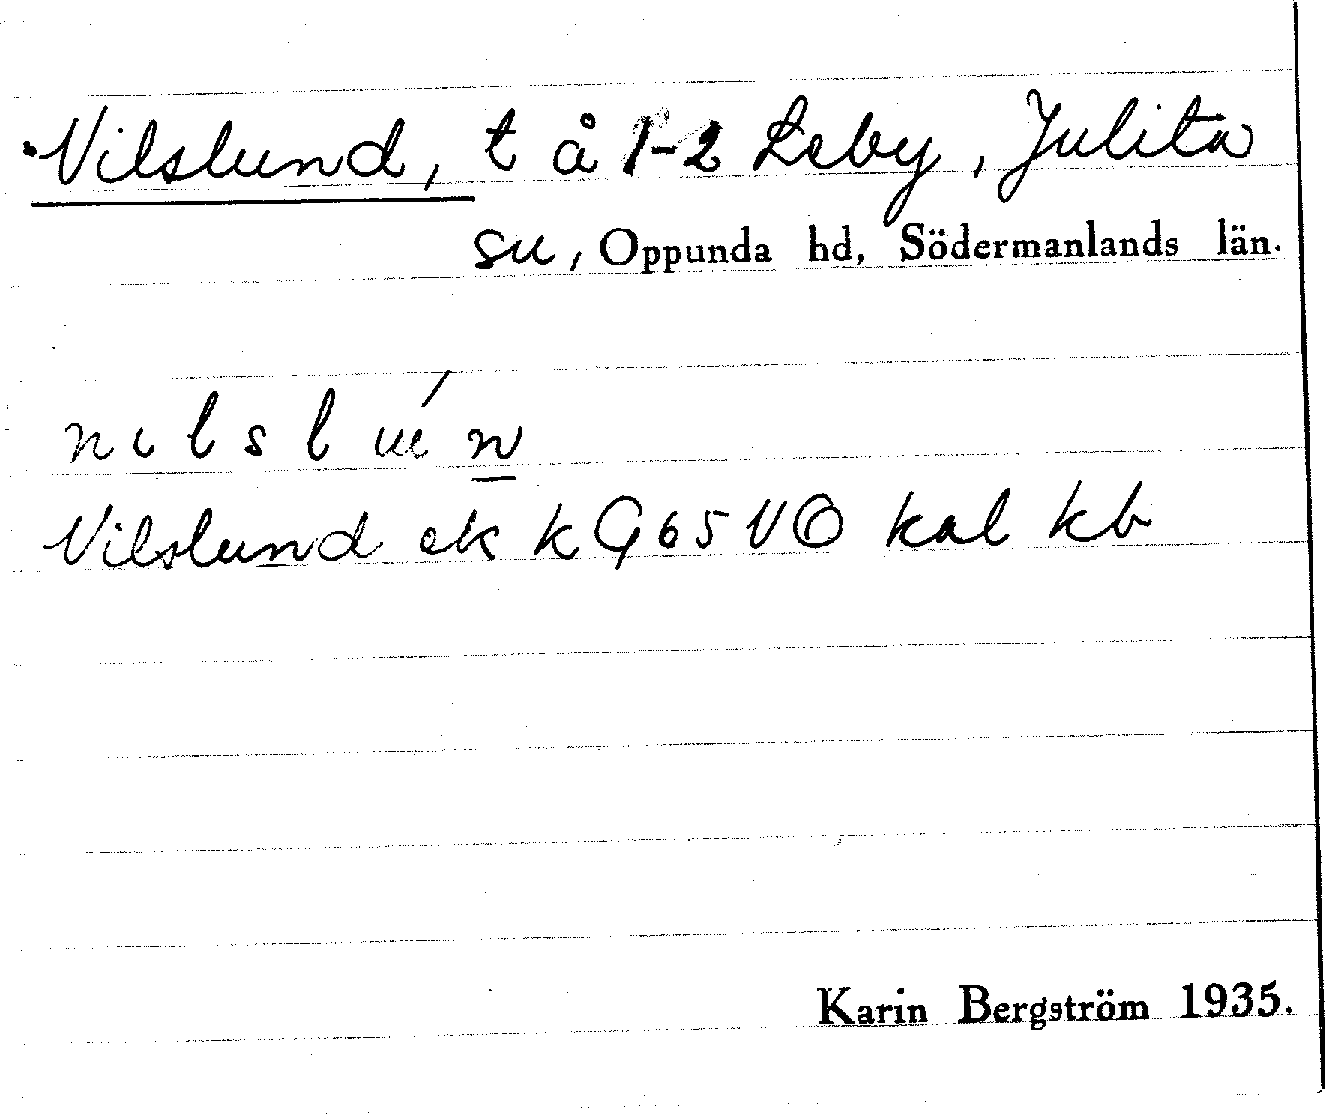 Nilslund, t å 1-2 Leby, Julita
su, Oppunda hd, Södermanlands län.
nɩlslué́n
Nilslund ek k G65 VO kal kb
Karin Bergström 1935.